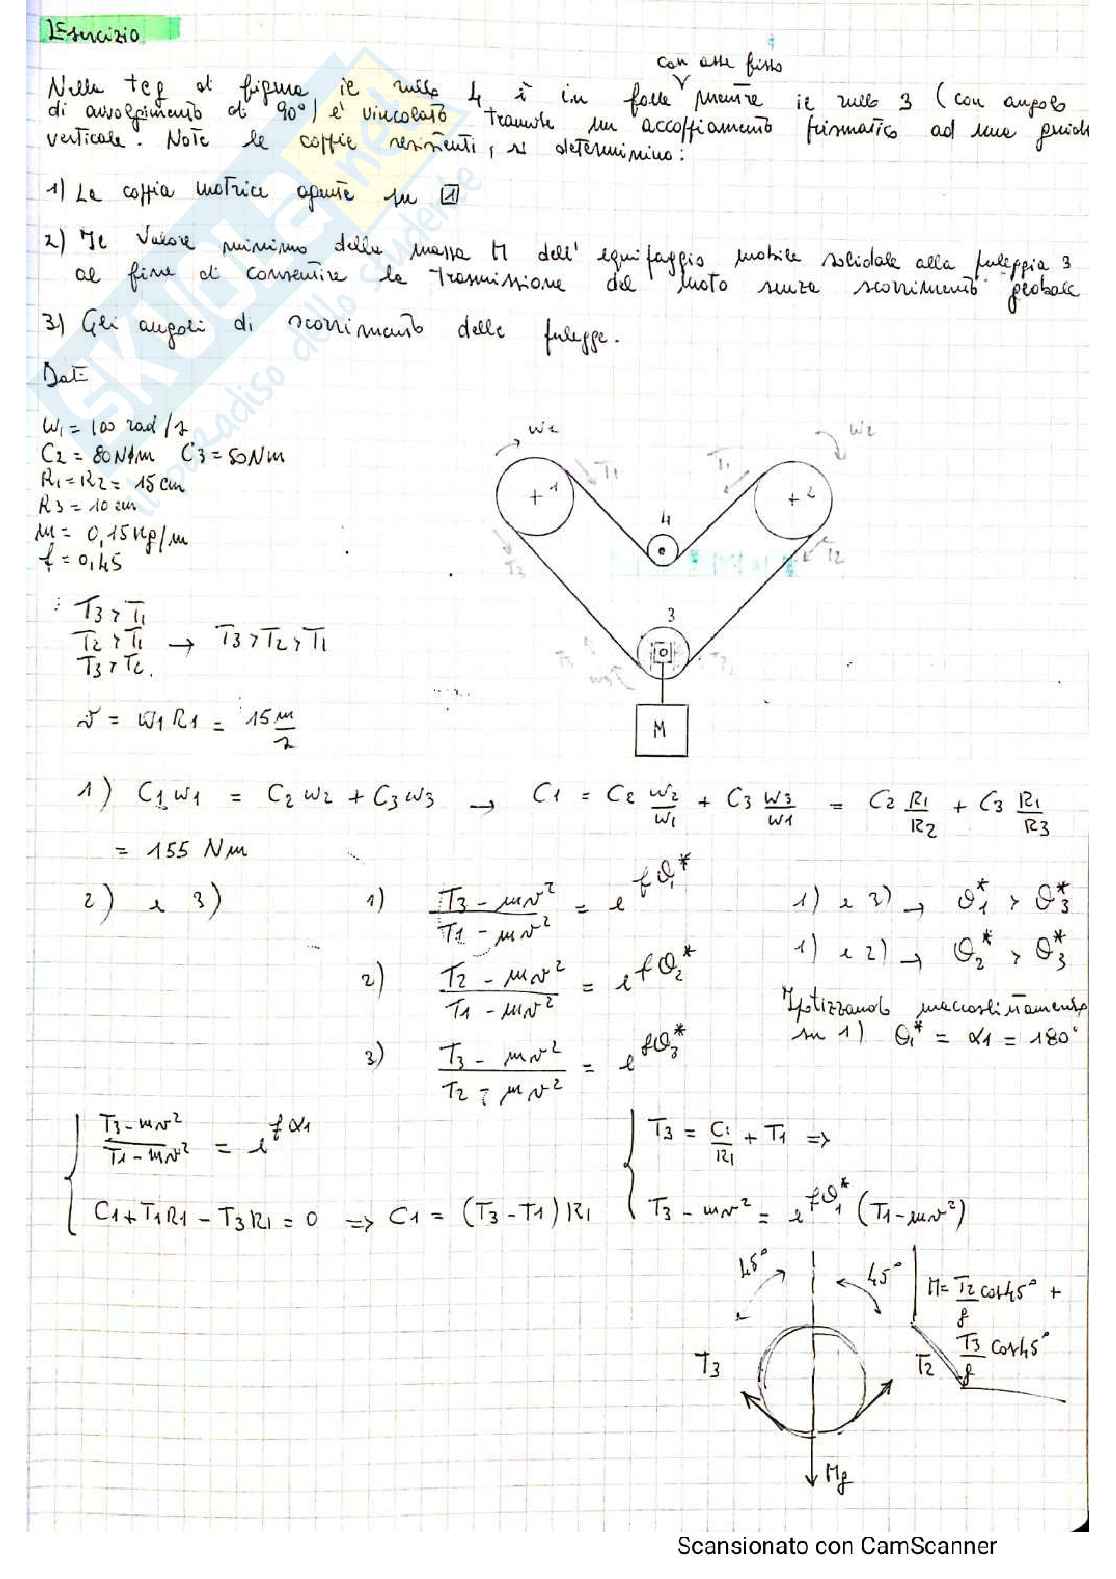 Esercizio
con asse fisso
Nella tcf di figura il rullo 4 è in folle mentre il rullo 3 (con angolo
di avvolgimento di 90°) è vincolato tramite un accoppiamento prismatico ad una guida
verticale. Note le coppie resistenti, si determinino:
1) La coppia motrice agente su 1
2) Il valore minimo della massa M dell'equipaggio mobile solidale alla puleggia 3
al fine di consentire la trasmissione del moto senza scorrimento globale
3) Gli angoli di scorrimento delle pulegge.
Dati
W1 = 100 rad/s
C2 = 80 Nm C3 = 50 Nm
R1 = R2 = 15 cm
R3 = 10 cm
m = 0,15 Kg/m
f = 0,45
W2
W2
T1
T1
1
2
4
T3
T2
3
M
T3 > T1
T2 > T1 → T3 > T2 > T1
T3 > T2.
v = W1 R1 = 15 m/s
1) C1 W1 = C2 W2 + C3 W3 → C1 = C2 W2/W1 + C3 W3/W1 = C2 R1/R2 + C3 R1/R3
= 155 Nm
2) e 3)
1) (T3 - mv²)/(T1 - mv²) = e^(fθ1*)
1) e 3) → θ1* > θ3*
2) (T2 - mv²)/(T1 - mv²) = e^(fθ2*)
1) e 2) → θ2* > θ3*
Ipotizzando
su 1) θ1* = α1 = 180°
3) (T3 - mv²)/(T2 - mv²) = e^(fθ3*)
(T3 - mv²)/(T1 - mv²) = e^(fα1)
C1 + T1R1 - T3R1 = 0 => C1 = (T3 - T1) R1
T3 = C1/R1 + T1 =>
T3 - mv² = e^(fθ1*) (T1 - mv²)
45°
45°
M = T2/g cos45° +
T3/g cos45°
T3
T2
Mg
Scansionato con CamScanner